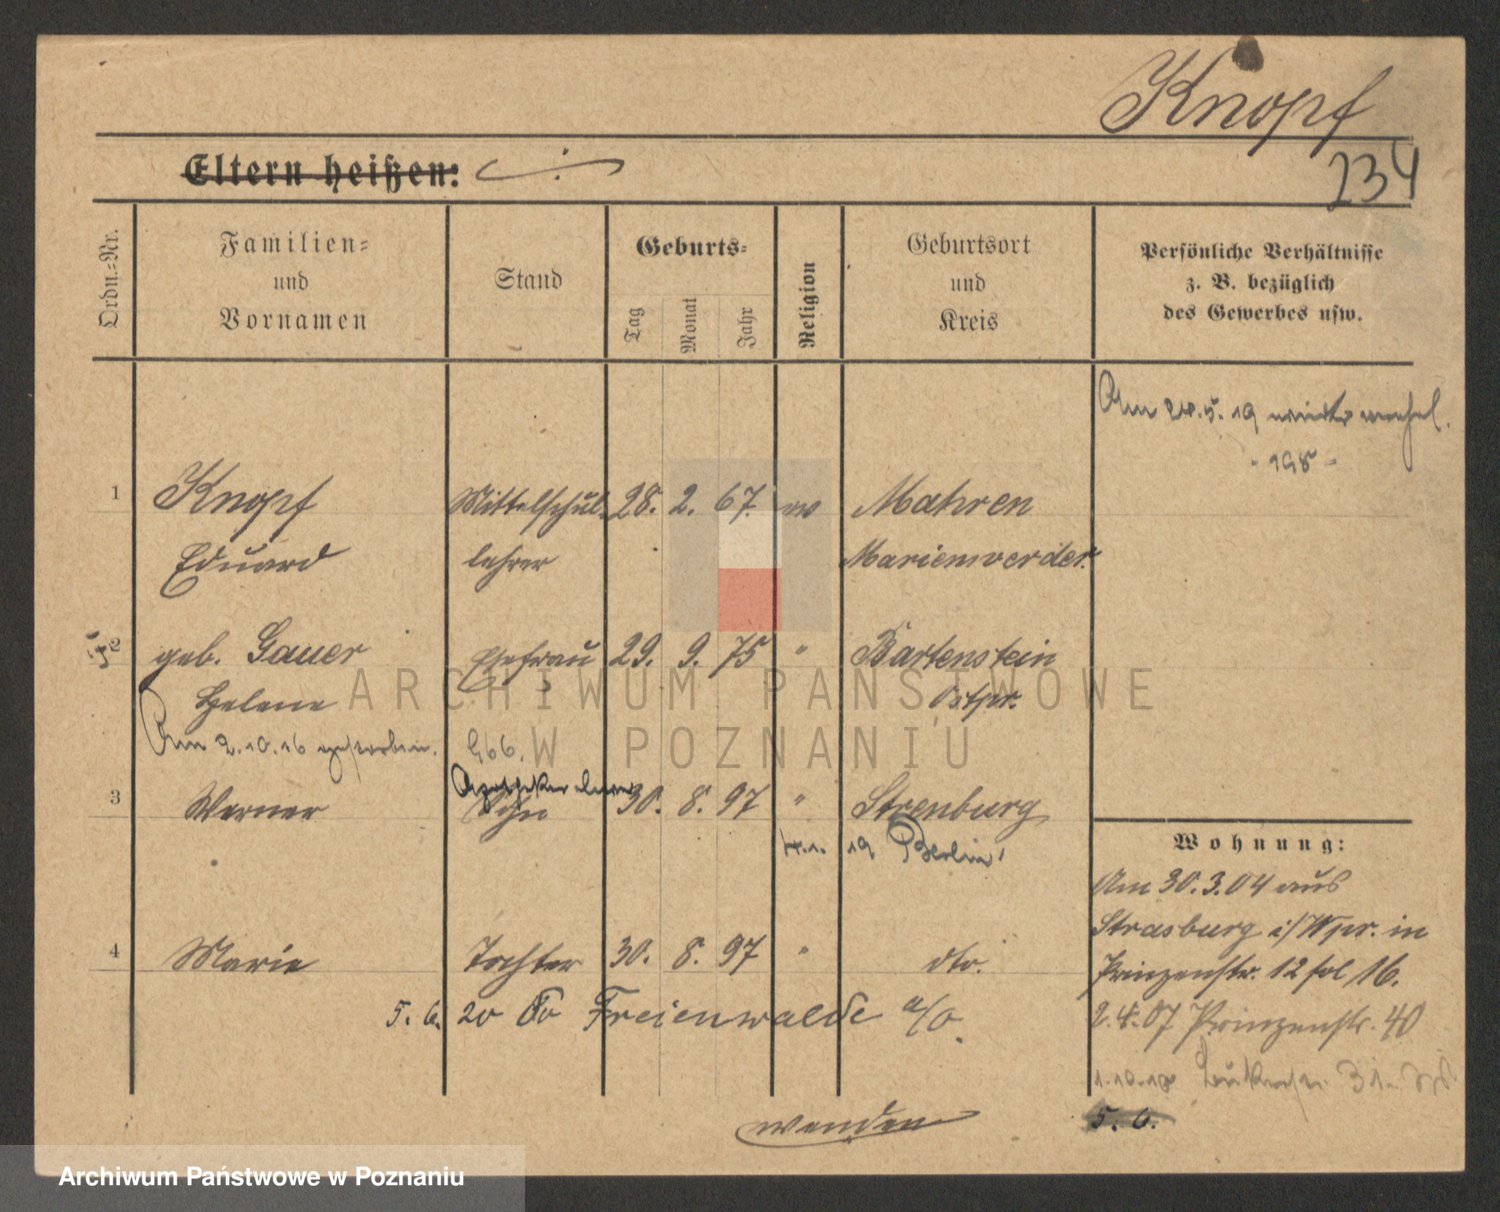 Knopf
234
Eltern heißen:
Ordn.-Nr.
Familien-
und
Vornamen
Stand
Geburts-
Tag
Monat
Jahr
Religion
Geburtsort
und
Kreis
Persönliche Verhältnisse
z. B. bezüglich
des Gewerbes usw.
Am 24.5.19
1 Knopf Mittelschul 28. 2. 67. Mahren
Eduard lehrer Marienwerder.
2 geb. Gauer Ehefrau 29. 9. 75 " Bartenstein
Helene Ostpr.
Am 2.10.16 gestorben.
3 Werner Sohn 30. 8. 97 "
19 Berlin
4 Marie Tochter 30. 8. 97 " dto.
5. 6. 20 Freienwalde a/O.
Wohnung:
Am 30.3.04 aus
Strasburg i/Wpr. in
Prinzenstr. 12 16.
07 Prinzenstr. 40
1.10.18 31.
5. 6.
wenden
ARCHIWUM PAŃSTWOWE
W POZNANIU
Archiwum Państwowe w Poznaniu